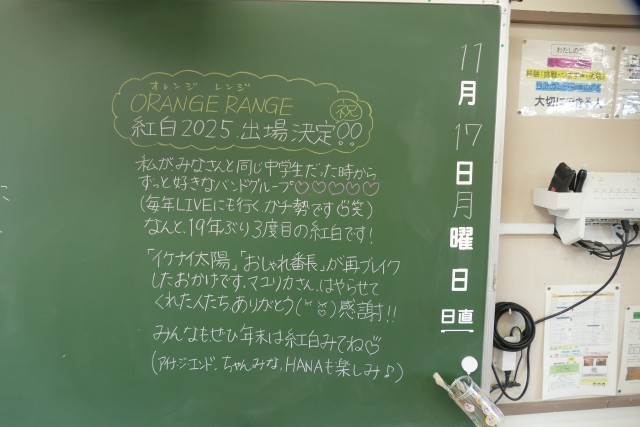 オレンジ レンジ
ORANGE RANGE 祝
紅白2025 出場決定!!
私がみなさんと同じ中学生だった時から
ずっと好きなバンドグループ♡♡♡♡♡
(毎年LIVEにも行く、ガチ勢です 笑)
なんと、19年ぶり3度目の紅白です!
「イケナイ太陽」「おしゃれ番長」が再ブレイク
したおかげです。マユリカさん、はやらせて
くれた人たちありがとう 感謝!!
みんなもぜひ年末は紅白みてね♡
(アイナ・ジ・エンド、ちゃんみな、HANAも楽しみ♪)
11
月
17
日
月
曜
日
日直
わたしの
大切にできる人